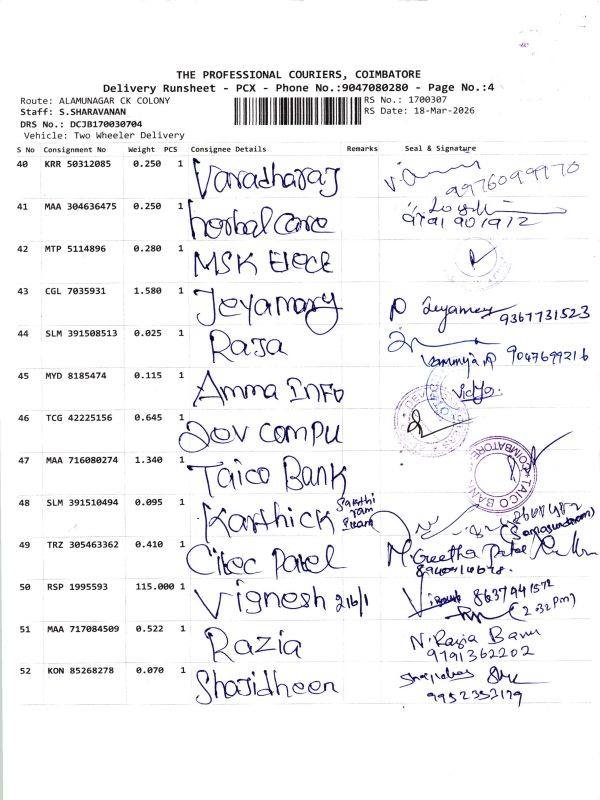 THE PROFESSIONAL COURIERS, COIMBATORE
Delivery Runsheet - PCX - Phone No.:9047080280 - Page No.:4
Route: ALAMUNAGAR CK COLONY
RS No.: 1700307
Staff: S.SHARAVANAN
RS Date: 18-Mar-2026
DRS No.: DCJB170030704
Vehicle: Two Wheeler Delivery
S No Consignment No Weight PCS Consignee Details Remarks Seal & Signature
40 KRR 50312085 0.250 1 Varadharaj
9976099770
41 MAA 304636475 0.250 1 herbal care
9791901912
42 MTP 5114896 0.280 1 MSK Elece
43 CGL 7035931 1.580 1 Jeyamary
P Jeyamery 9367731523
44 SLM 391508513 0.025 1 Raja
9047699216
45 MYD 8185474 0.115 1 Amma Info
Vidya.
46 TCG 42225156 0.645 1 Dov compu
47 MAA 716080274 1.340 1 Taico Bank
TAICO BANK COIMBATORE
48 SLM 391510494 0.095 1 Karthick Sakthi ram
49 TRZ 305463362 0.410 1 Citec Patel
M Geetha
50 RSP 1995593 115.000 1 Vignesh 216/1
8637941572
(2.32pm)
51 MAA 717084509 0.522 1 Razia
N. Razia Banu
9791362202
52 KON 85268278 0.070 1 Shajidheen
9952352179